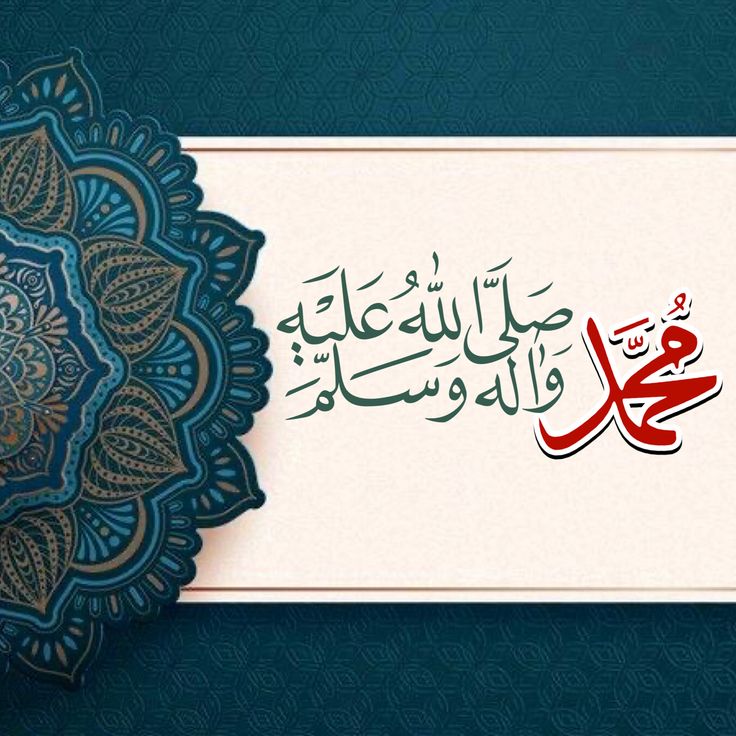 مُحَمَّد
صَلَّى اللّٰهُ عَلَيْهِ
وَاٰلِهٖ وَسَلَّمَ